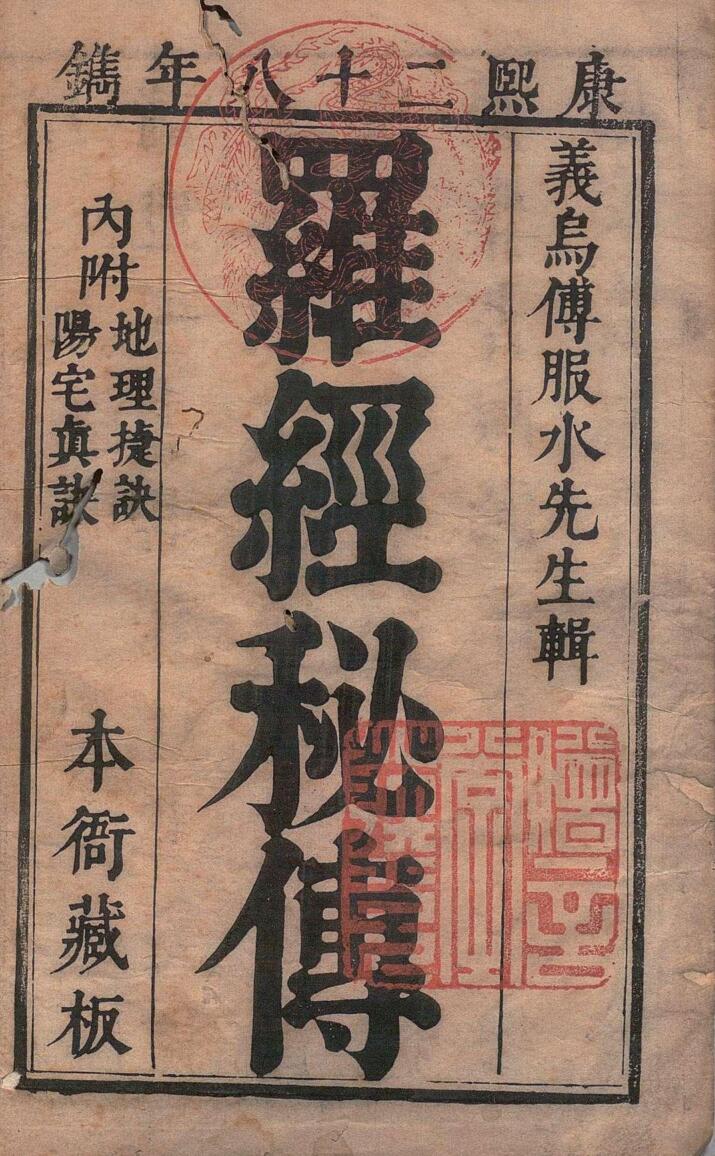 康熙二十八年鐫
義烏傅服水先生輯
羅經秘傳
內附
地理捷訣
陽宅真訣
本衙藏板